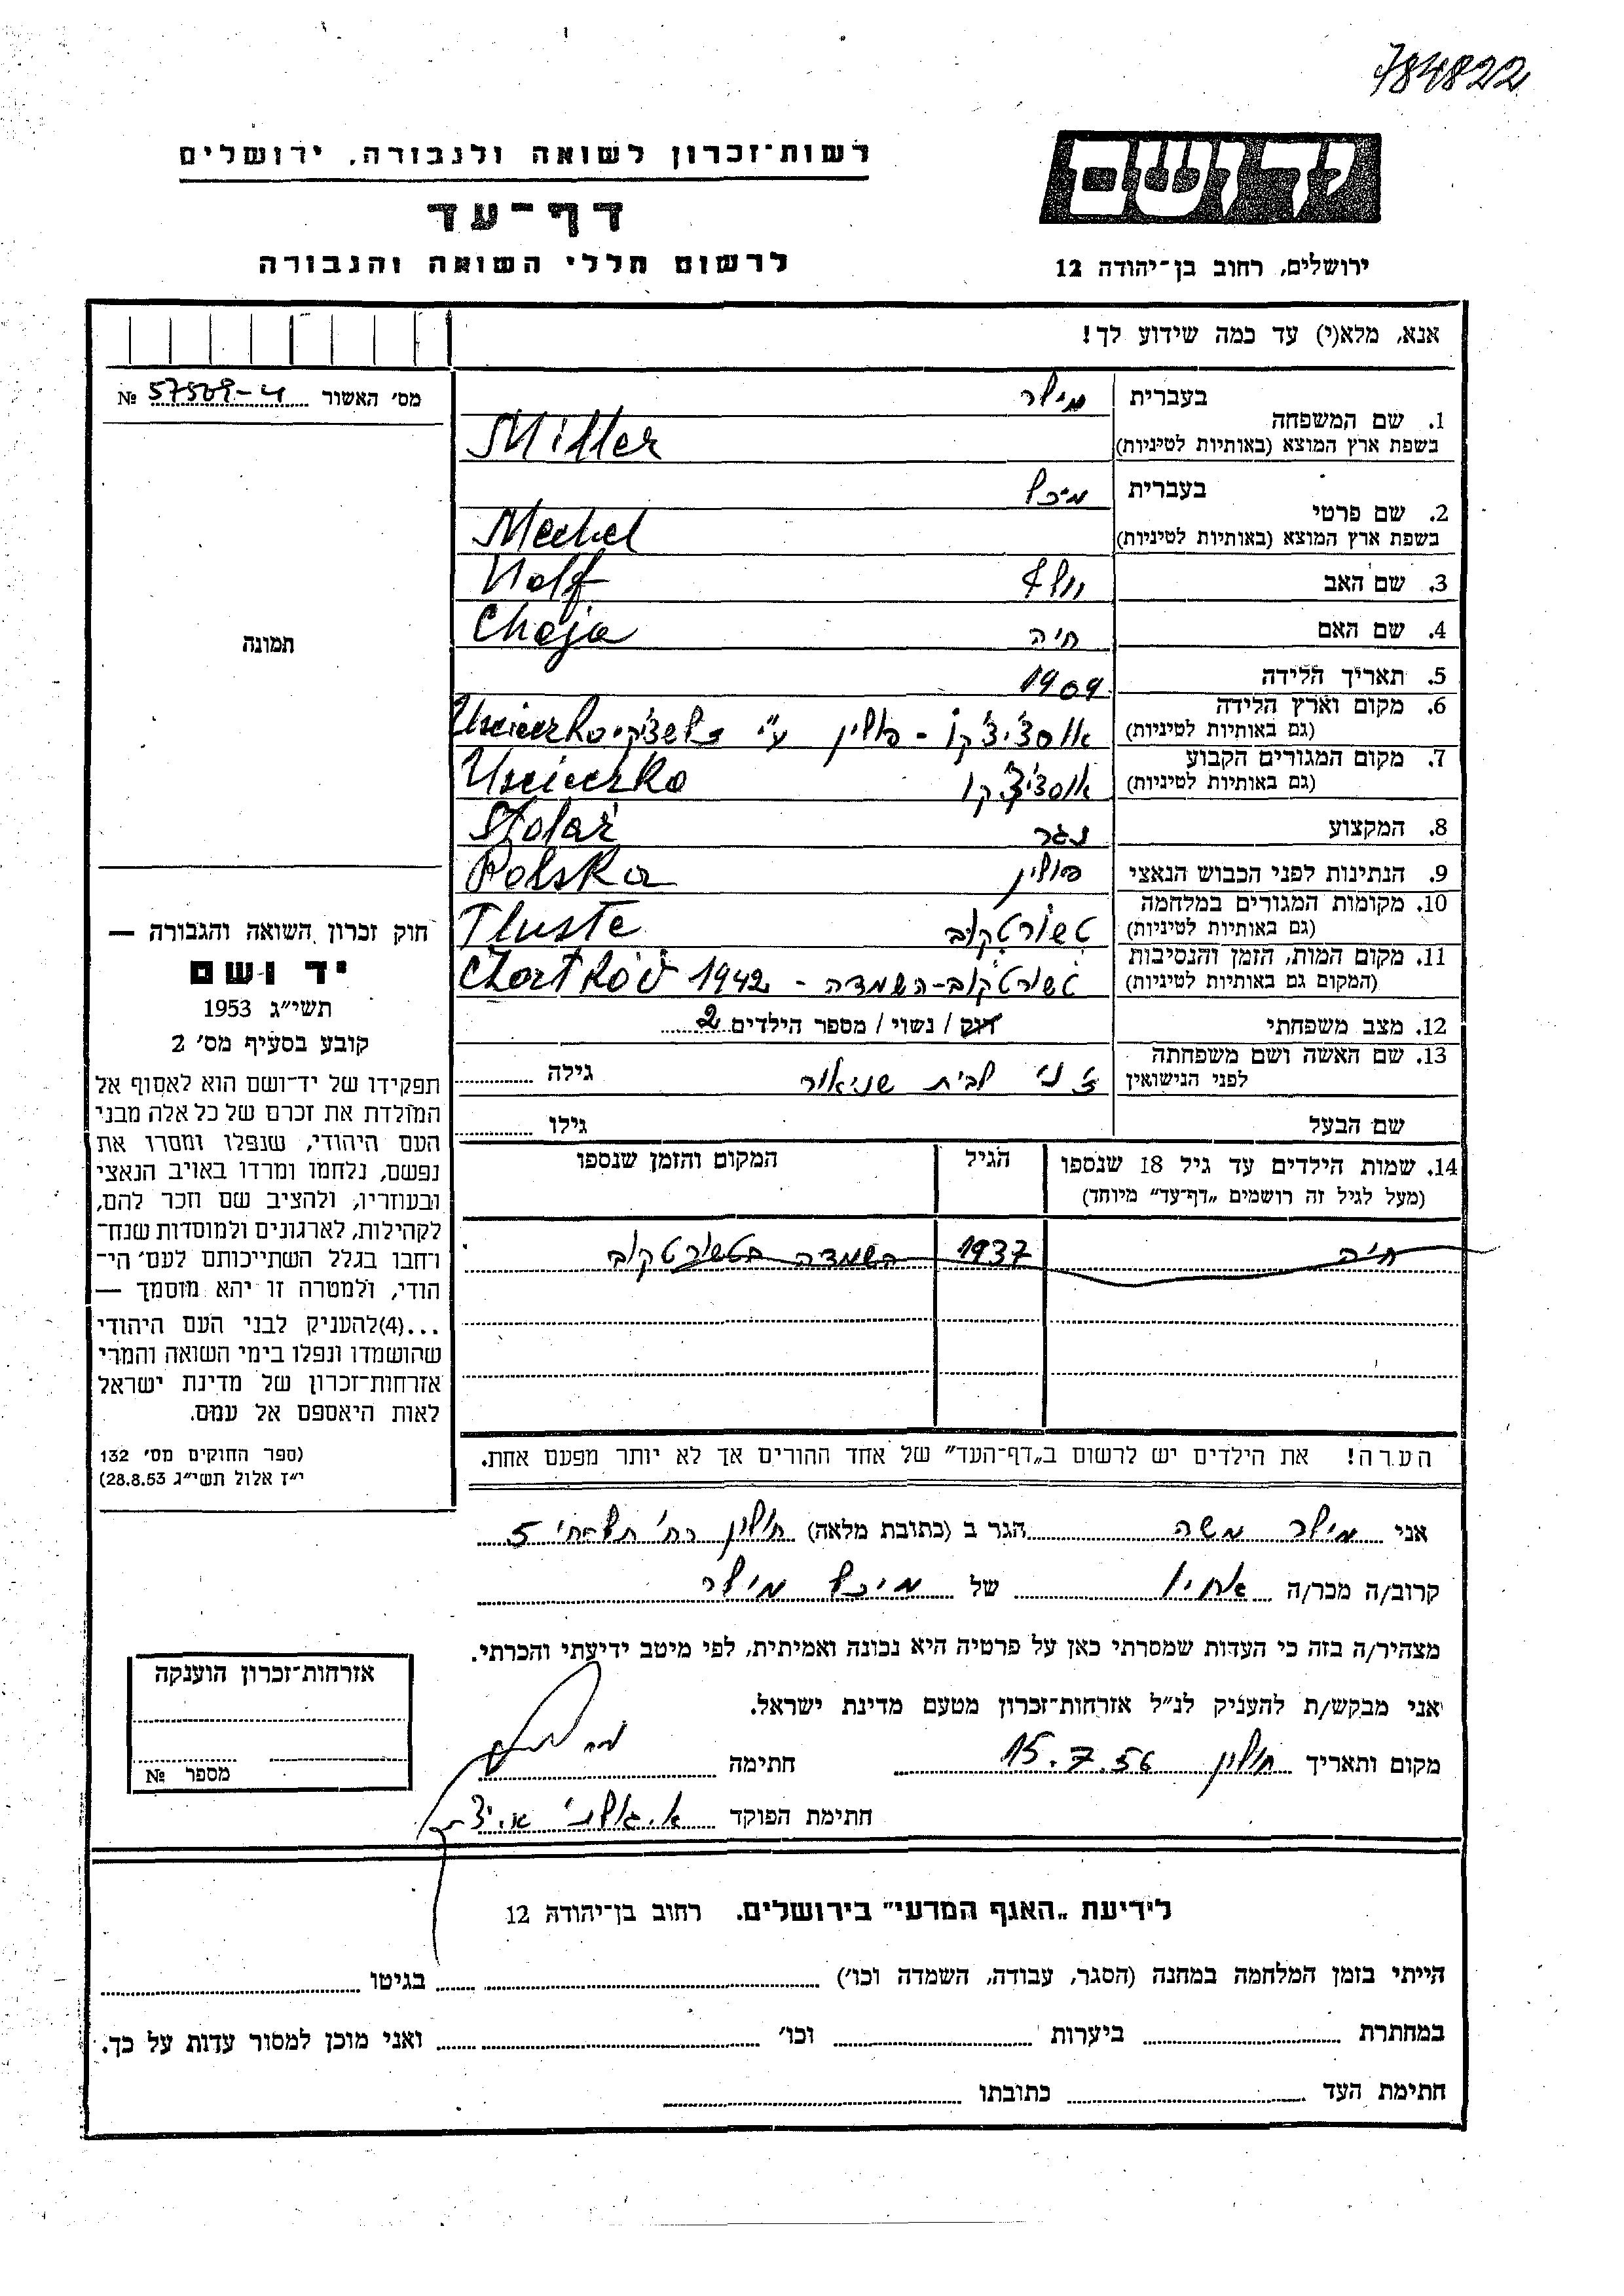 784822
רשות־זכרון לשואה ולגבורה, ירושלים
יד ושם
דף־עד
לרשום חללי השואה והגבורה
ירושלים, רחוב בן־יהודה 12
אנא, מלא(י) עד כמה שידוע לך!
מס׳ האשור № 57569-
1. שם המשפחה בעברית מילר
בשפת ארץ המוצא (באותיות לטיניות) Miller
2. שם פרטי בעברית מיכל
בשפת ארץ המוצא (באותיות לטיניות) Mechel
3. שם האב וולף Wolf
4. שם האם חיה Chaja
5. תאריך הלידה 1909
6. מקום וארץ הלידה (גם באותיות לטיניות) אוסצ׳יצ׳קו - פולין ע״י Uscieczko
7. מקום המגורים הקבוע (גם באותיות לטיניות) אוסצ׳יצ׳קו Uscieczko
8. המקצוע נגר Stolar
9. הנתינות לפני הכבוש הנאצי פולין Polska
10. מקומות המגורים במלחמה (גם באותיות לטיניות) טשורטקוב Tluste
11. מקום המות, הזמן והנסיבות (המקום גם באותיות לטיניות) טשורטקוב - השמדה - 1942 Chortków
12. מצב משפחתי רוק / נשוי / מספר הילדים 2
13. שם האשה ושם משפחתה לפני הנישואין לבית שניאור גילה
שם הבעל גילו
14. שמות הילדים עד גיל 18 שנספו (מעל לגיל זה רושמים „דף־עד״ מיוחד) הגיל המקום והזמן שנספו
חיה 1937 השמדה בטשורטקוב
הערה! את הילדים יש לרשום ב„דף־העד״ של אחד ההורים אך לא יותר מפעם אחת.
תמונה
חוק זכרון השואה והגבורה —
יד ושם
תשי״ג 1953
קובע בסעיף מס׳ 2
תפקידו של יד־ושם הוא לאסוף אל
המולדת את זכרם של כל אלה מבני
העם היהודי, שנפלו ומסרו את
נפשם, נלחמו ומרדו באויב הנאצי
ובעוזריו, ולהציב שם וזכר להם,
לקהילות, לארגונים ולמוסדות שנח־
רבו בגלל השתייכותם לעם הי־
הודי, ולמטרה זו יהא מוסמך —
...(4)להעניק לבני העם היהודי
שהושמדו ונפלו בימי השואה והמרי
אזרחות־זכרון של מדינת ישראל
לאות היאספם אל עמם.
(ספר החוקים מס׳ 132
י״ז אלול תשי״ג 28.8.53)
אני מילר משה הגר ב (כתובת מלאה) חולון רח׳ 5
קרוב/ה מכר/ה אחיו של מיכל מילר
מצהיר/ה בזה כי העדות שמסרתי כאן על פרטיה היא נכונה ואמיתית, לפי מיטב ידיעתי והכרתי.
אני מבקש/ת להעניק לנ״ל אזרחות־זכרון מטעם מדינת ישראל.
מקום ותאריך חולון 15.7.56 חתימה
חתימת הפוקד
אזרחות־זכרון הוענקה
מספר №
לידיעת „האגף המדעי״ בירושלים. רחוב בן־יהודה 12
הייתי בזמן המלחמה במחנה (הסגר, עבודה, השמדה וכו׳) בגיטו
במחתרת ביערות וכו׳ ואני מוכן למסור עדות על כך.
חתימת העד כתובתו